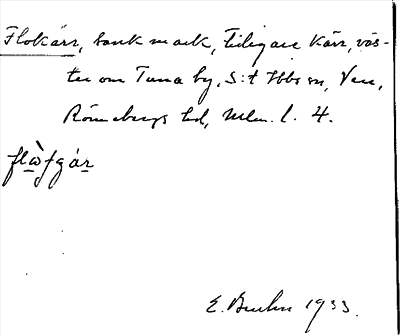 Flokärr, sank mark, tidigare kärr, väs-
ter om Tuna by, S:t Ibbs sn, Ven,
Rönnebergs hd, Mlm. l. 4.
flåfgár
E. Bruhn 1933.